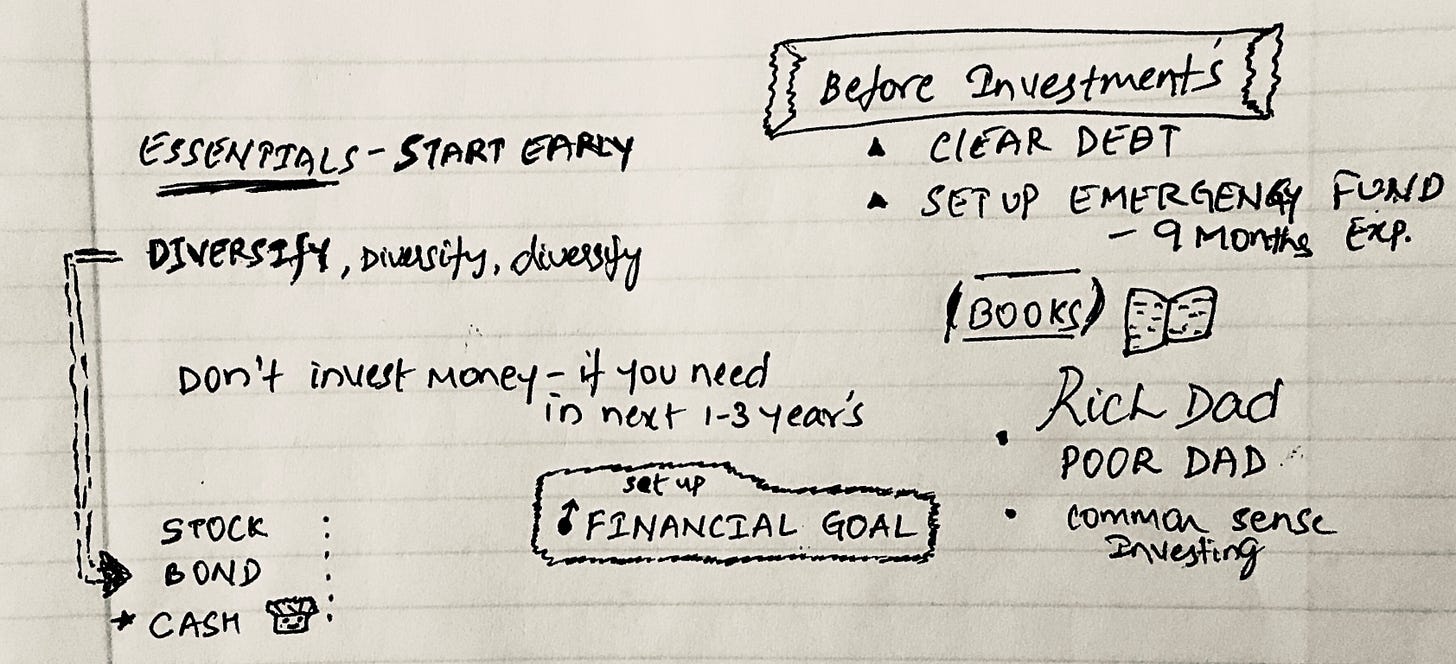 ESSENTIALS - START EARLY
DIVERSIFY, Diversify, diversify
Don't invest Money - if you need
in next 1-3 year's
set up
FINANCIAL GOAL
STOCK
BOND
CASH
Before Investment's
CLEAR DEBT
SET UP EMERGENCY FUND
- 9 Months Exp.
(BOOKS)
Rich Dad
POOR DAD
common sense
Investing